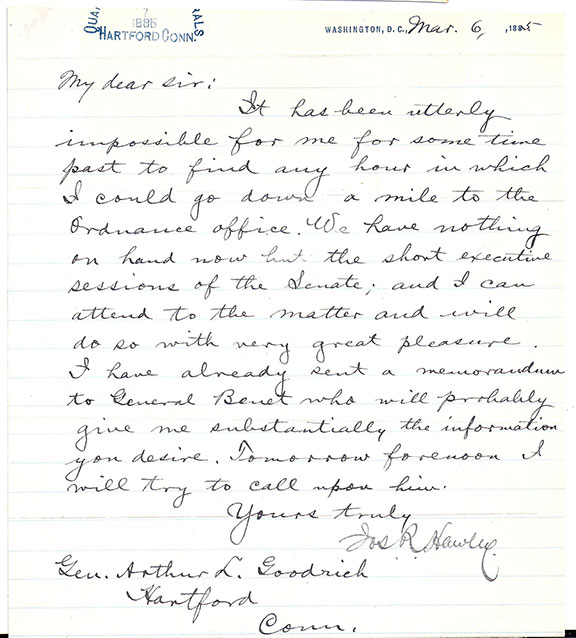 QUA
7
1885
ALS.
HARTFORD CONN.
WASHINGTON, D. C., Mar. 6, 1885
My dear sir:
It has been utterly
impossible for me for some time
past to find any hour in which
I could go down a mile to the
Ordnance office. We have nothing
on hand now but the short executive
sessions of the Senate; and I can
attend to the matter and will
do so with very great pleasure.
I have already sent a memorandum
to General Benet who will probably
give me substantially the information
you desire. Tomorrow forenoon I
will try to call upon him.
Yours truly
Jos. R. Hawley.
Gen. Arthur L. Goodrich
Hartford
Conn.